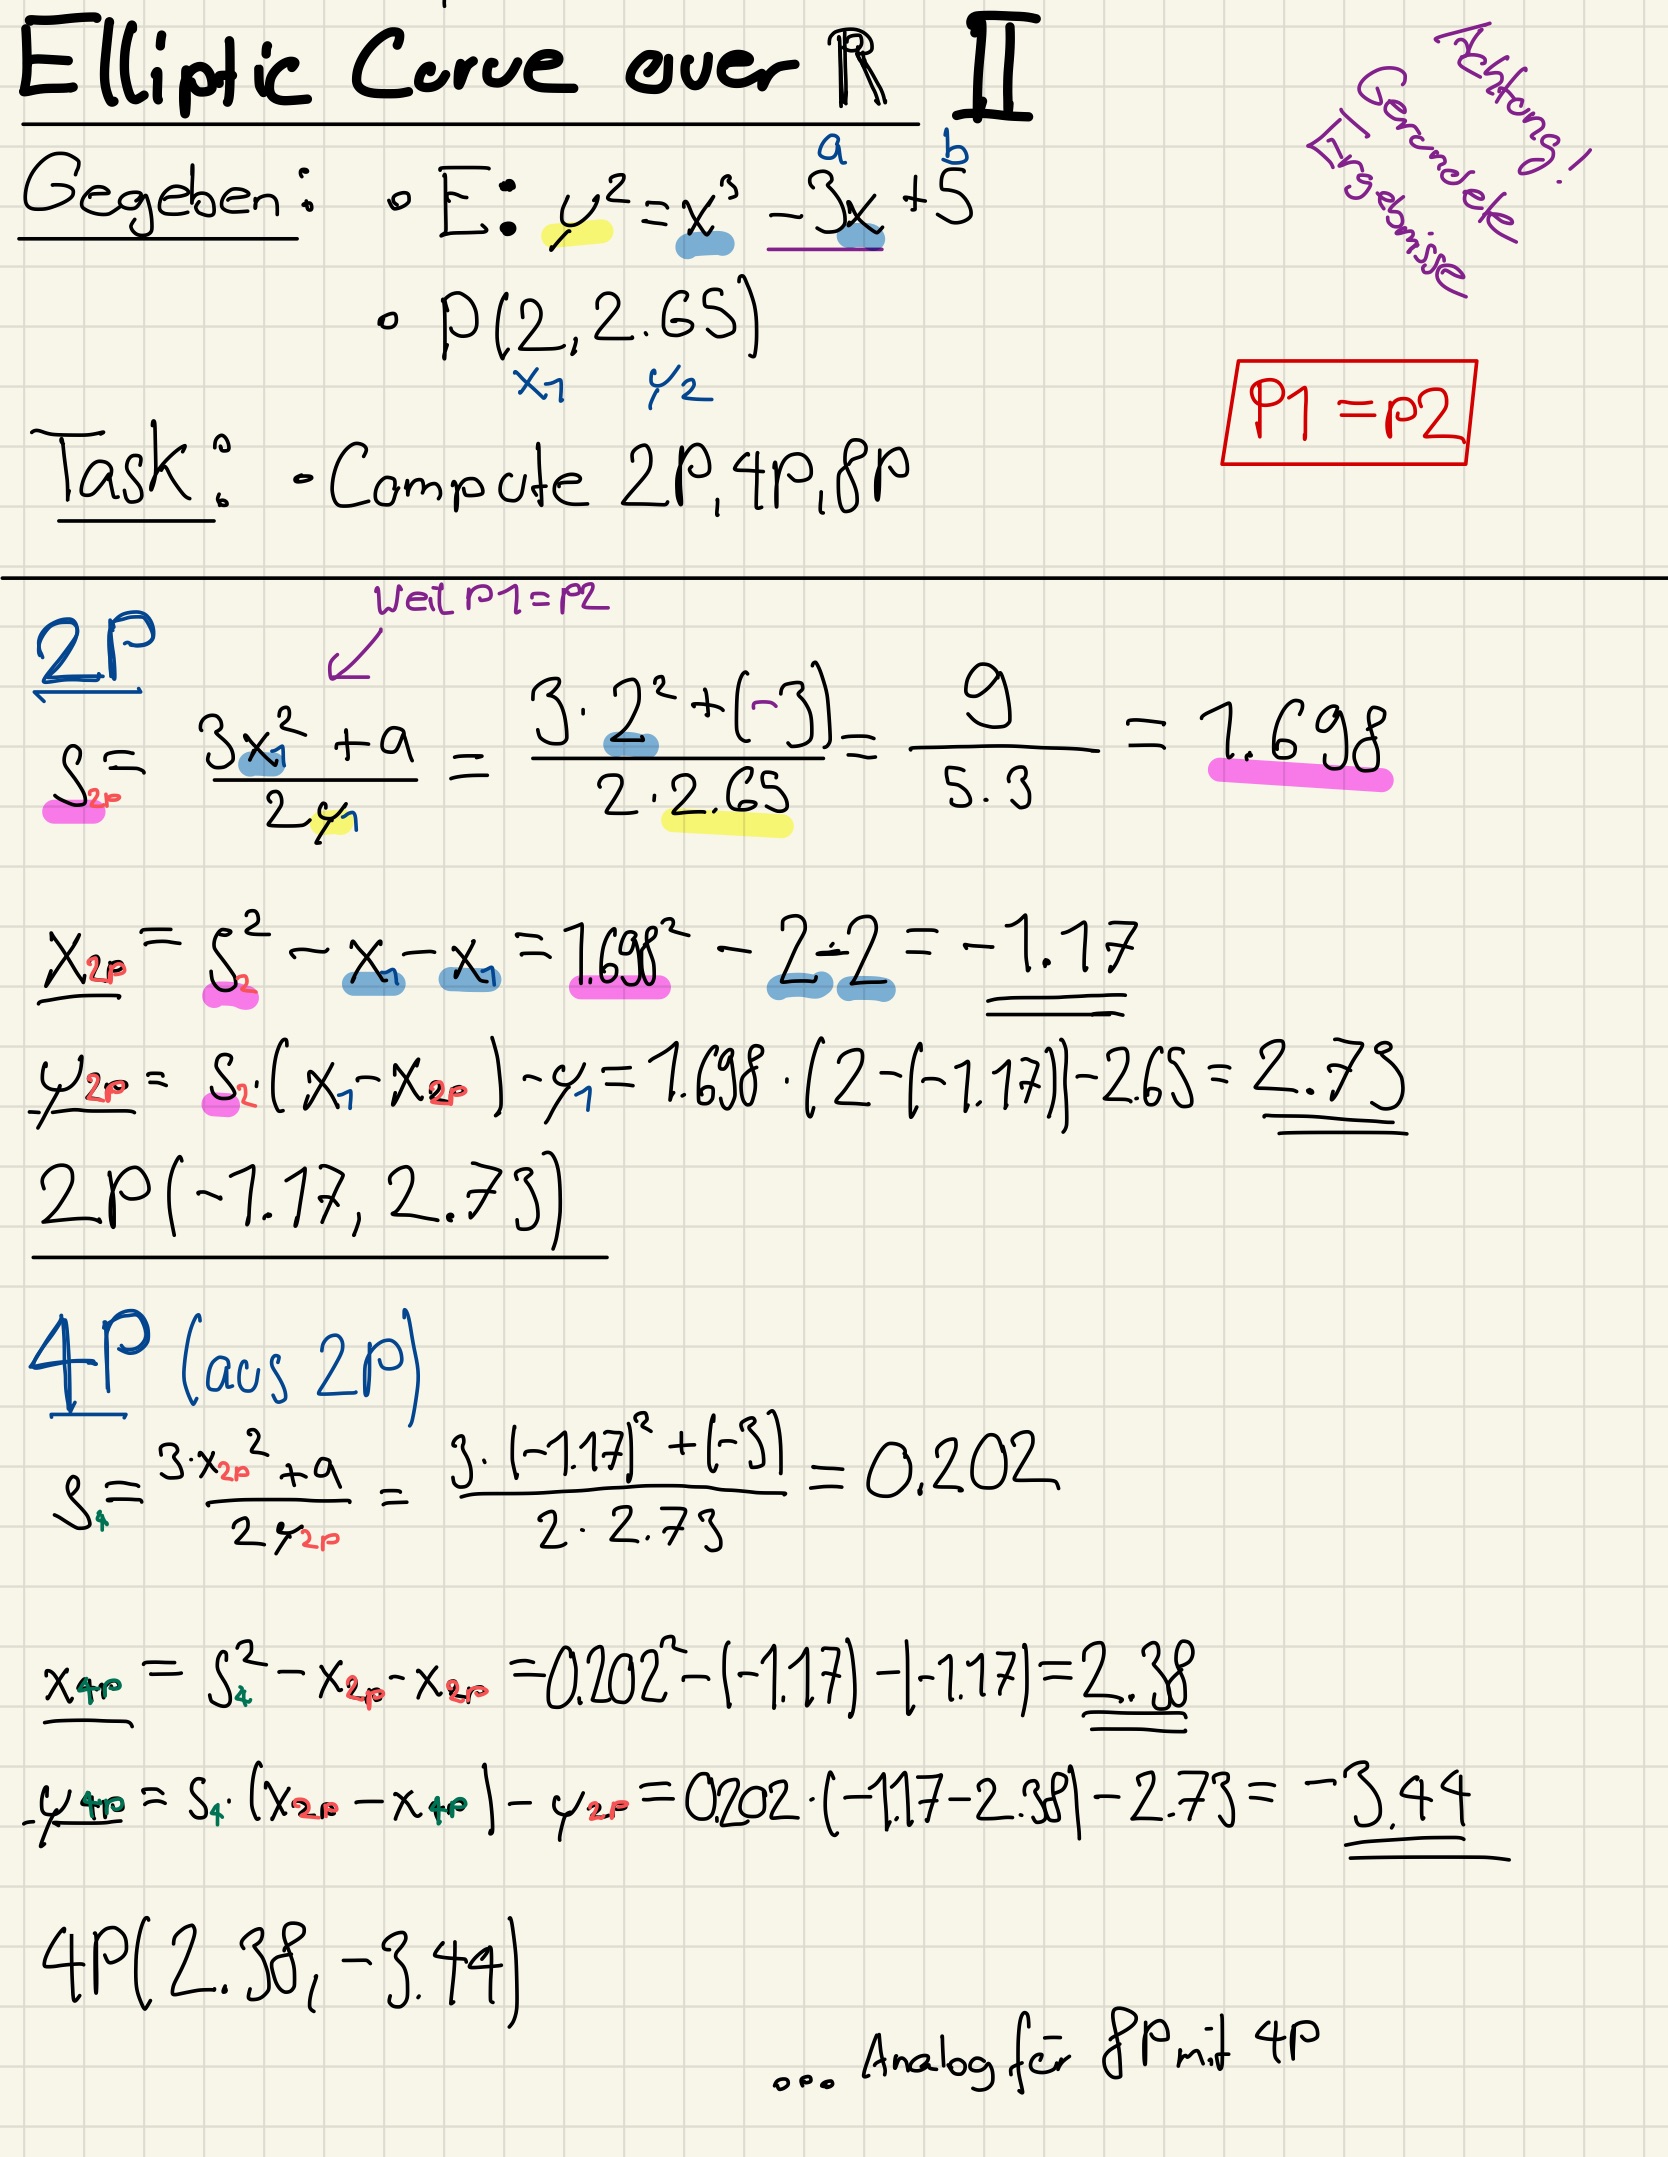 Elliptic Corve over ℝ II
Achtong!
Gerondete
Ergebnisse
a b
Gegeben: • E: y² = x³ - 3x + 5
• P(2, 2.65)
x1 y2
P1 = P2
Task: - Compote 2P, 4P, 8P
Weil P1 = P2
2P
S2P = (3x1² + a) / (2y1) = (3 · 2² + (-3)) / (2 · 2.65) = 9 / 5.3 = 1.698
x2P = S2² - x1 - x1 = 1.698² - 2 - 2 = -1.17
y2P = S2 · (x1 - x2P) - y1 = 1.698 · (2 - (-1.17)) - 2.65 = 2.73
2P(-1.17, 2.73)
4P (aus 2P)
S4 = (3 · x2P² + a) / (2y2P) = (3 · (-1.17)² + (-3)) / (2 · 2.73) = 0.202
x4P = S4² - x2P - x2P = 0.202² - (-1.17) - (-1.17) = 2.38
y4P = S4 · (x2P - x4P) - y2P = 0.202 · (-1.17 - 2.38) - 2.73 = -3.44
4P(2.38, -3.44)
... Analog für 8P mit 4P